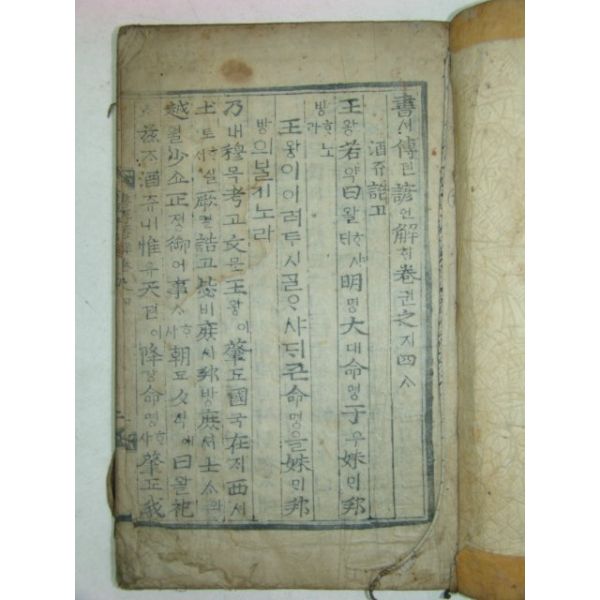 書셔傳뎐諺언解ᄒᆡ卷권之지四ᄉᆞ
酒쥬誥고
王왕若약曰왈ᄒᆞ샤ᄃᆡ明명大대命명于우妹ᄆᆡ邦
방ᄒᆞ노라
王왕이이러ᄐᆞ시ᄀᆞᆯᄋᆞ샤ᄃᆡ큰命명을妹ᄆᆡ邦
방의ᄇᆞᆯ키노라
乃내穆목考고文문王왕이肇됴國국在ᄌᆡ西셔
土토ᄒᆞ실ᄉᆡ厥궐誥고毖비庶셔邦방庶셔士ᄉᆞ와
越월少쇼正졍御어事ᄉᆞᄒᆞ샤朝됴夕셕에曰왈祀
玆ᄌᆞ酒쥬ㅣ니惟유天텬이降강命명ᄒᆞ샤肇됴我